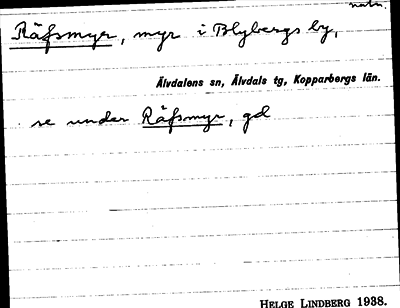 natn.
Räfsmyr, myr i Blybergs by,
Älvdalens sn, Älvdals tg, Kopparbergs län.
se under Räfsmyr, gd
HELGE LINDBERG 1938.